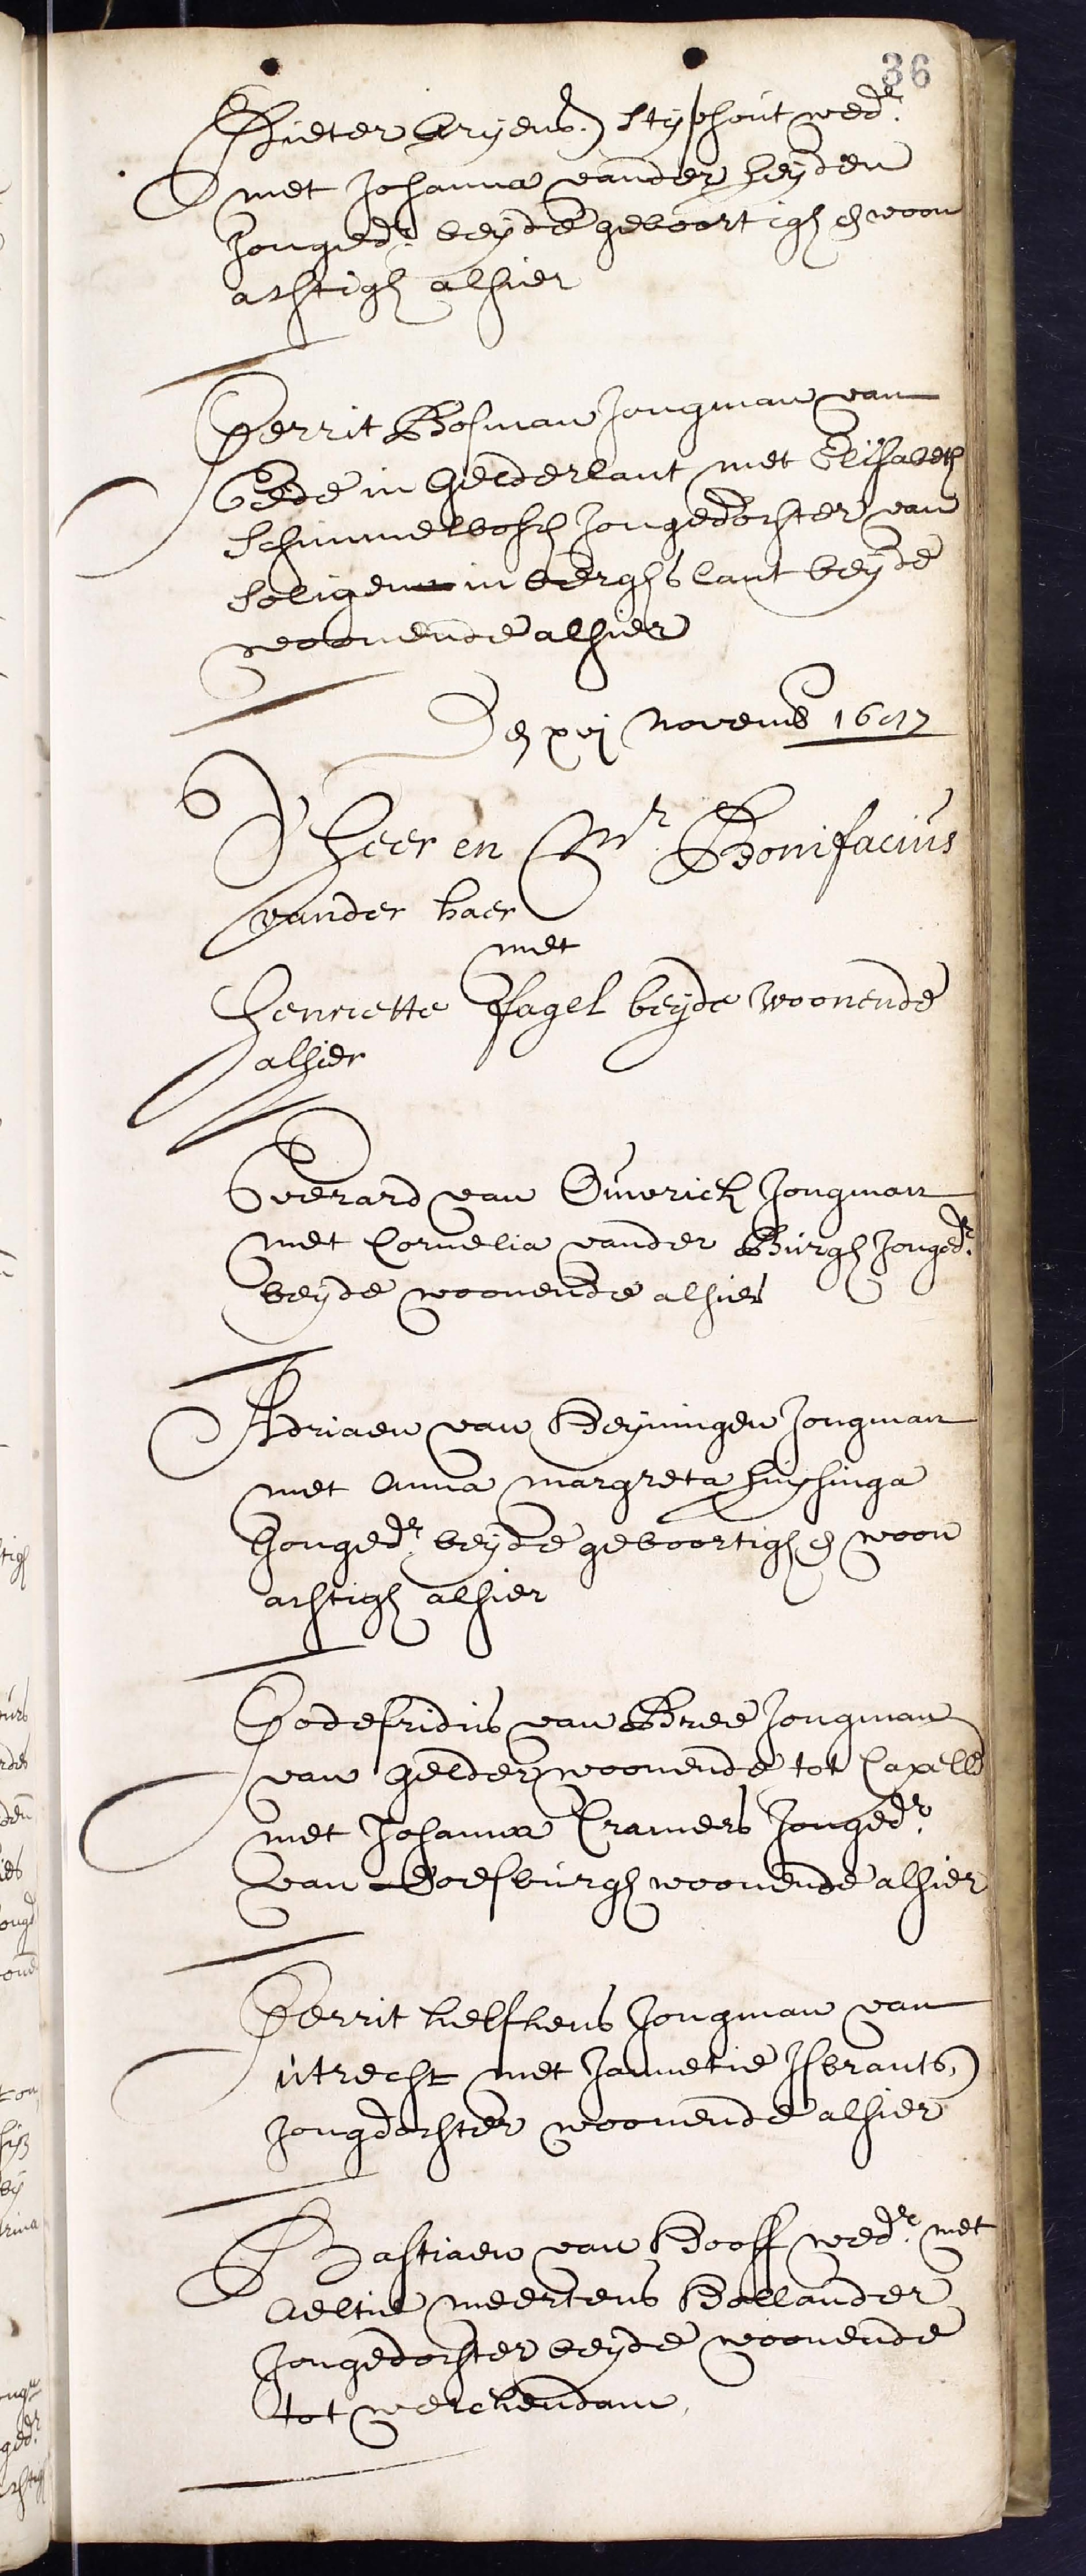 36
Pieter Aryens. Stijphout wedr.
met Johanna vander heijden
Jongedr. beijde geboortigh en woon
achtigh alhier
Gerrit Bosman Jongman van
Eede in Gelderlant met Elisabeth
Schimmelbosch Jongedochter van
Soligen in berghs lant beijde
woonende alhier
Den xvj novemb 1697
D' heer en Mr. Bonifacius
vander haer
met
Henriette Fagel beijde woonende
alhier
Everard van Omrich Jongman
met Cornelia vander Burgh Jongedr.
beijde woonende alhier
Adriaen van Heijningen Jongman
met Anna margreta huijsinga
Jongedr. beijde geboortigh en woon
achtigh alhier
Godefridus van Bree Jongman
van gelder woonende tot Capelle
met Johanna Cramers Jongedr.
van Doesburgh woonende alhier
Gerrit helfkens Jongman van
utrecht met Jannetie Isbrants,
Jongdochter woonende alhier
Bastiaen van Hooff wedr. met
Aeltie meertens Hollander
Jongedochter beijde woonende
tot werckendam,